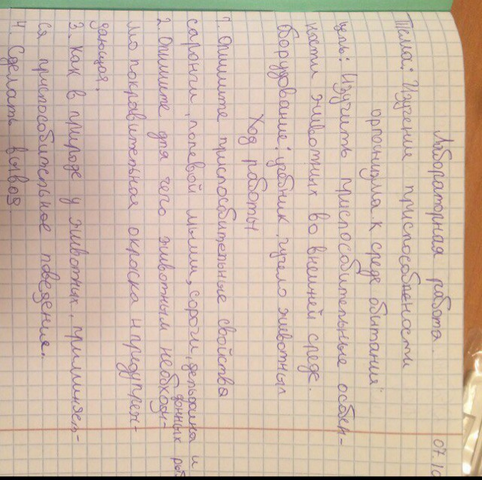 07.10
Лабораторная работа
Тема: Изучения приспособленности
организма к среде обитания"
цель: Изучить приспособительные особен-
ности животных во внешней среде.
Оборудование: учебник, чучело животных
Ход работы
1. Опишите приспособительные свойства
саранчи, полевой мыши, сороги, дельфина и
донных рыб
2. Опишите для чего животным необходи-
мо покравительная окраска и предупреж-
дающая.
3. Как в природе у животных применяет-
ся приспособительное поведение.
4 Сделать вывод